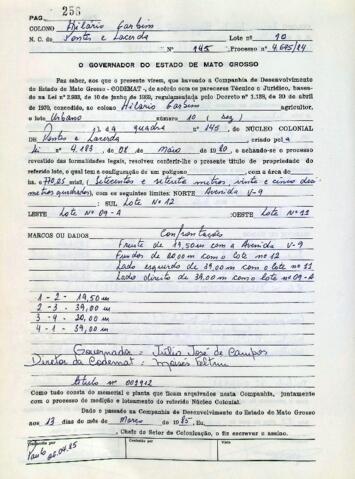 PAG. 256
COLONO Hilário Garbim
N. C. de Pontes e Lacerda Lote nº 10
Nº 145 Processo nº 4.695/84
O GOVERNADOR DO ESTADO DE MATO GROSSO
Faz saber, aos que o presente virem, que havendo a Companhia de Desenvolvimento
do Estado de Mato Grosso - CODEMAT -, de acôrdo com os pareceres Técnico e Jurídico, basea-
dos na Lei nº 2.933, de 10 de junho de 1939, regulamentada pelo Decreto nº 1.138, de 20 de abril
de 1970, concedido, ao colono Hilário Garbim agricultor,
o lote Urbano número 10 (dez)
da quadra nº 145, DE NÚCLEO COLONIAL
DE Pontes e Lacerda criado pela
Lei nº 4.183, de 08 de Maio de 1980, e achando-se o processo
revestido das formalidades legais, resolveu conferir-lhe o presente título de propriedade do
referido lote, o qual tem a configuração de um polígono com a área de
ha. e 770,25 mts2 (Setecentos e setenta metros vinte e cinco deci
metros quadrados), com os seguintes limites: NORTE Avenida V-9
: SUL Lote nº 12
LESTE Lote nº 09-A :OESTE Lote Nº 11
MARCOS OU DADOS Confrontações
Frente de 19,50m com a Avenida V-9
Fundos de 20,00 m com o lote nº 12
Lado esquerdo de 39,00 m com o lote nº 11
Lado direito de 39,00 m com o lote nº 09-A
1 - 2 - 19,50 m
2 - 3 - 39,00 m
3 - 4 - 20,00 m
4 - 1 - 39,00 m
Governador = Júlio José de Campos
Diretor da Codemat = Moisés Feltrin
título nº 001912
Como tudo consta do memorial e planta que ficam arquivados nesta Companhia, juntamente
com o processo de medição e loteamento do referido Núcleo Colonial.
Dado e passado na Companhia de Desenvolvimento do Estado de Mato Grosso
aos 13 dias do mês de Março de 1985 Eu,
, Chefe do Setor de Colonização, o fiz escrever e assino.
Conferido por
Visto